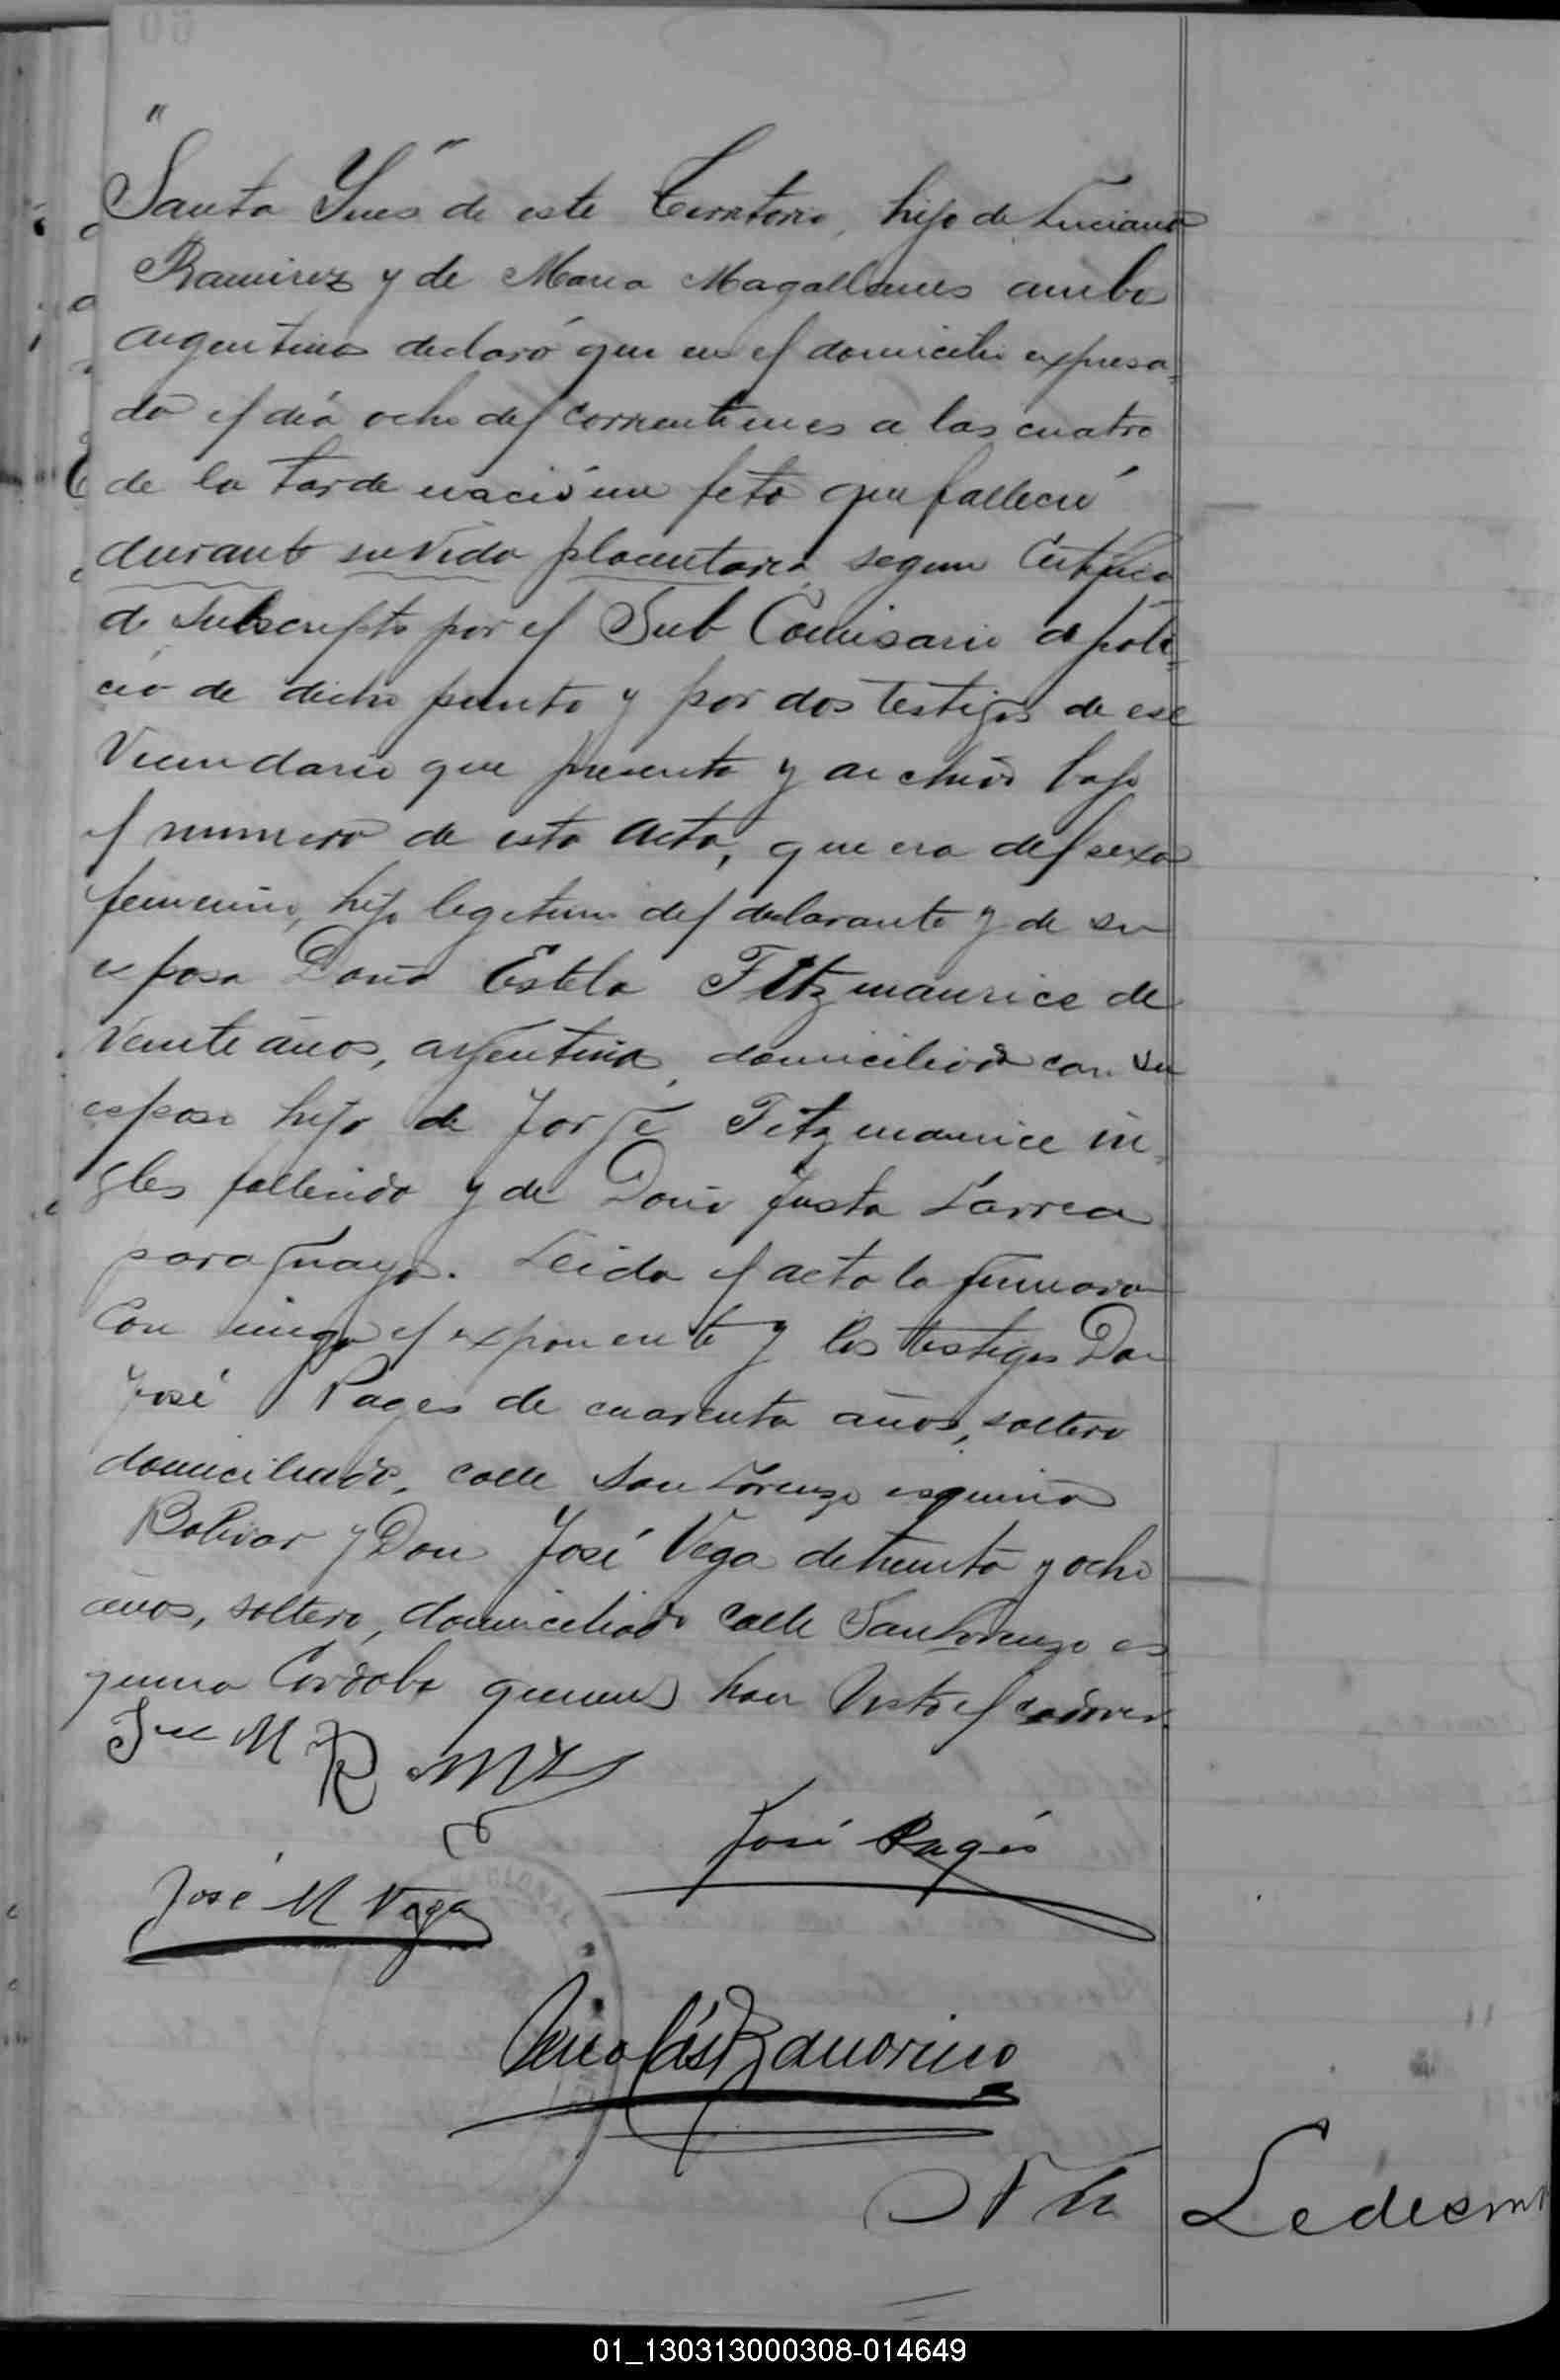 "Santa Ynés" de este Territorio, hijo de Luciano
Ramirez y de Maria Magallanes ambos
argentinos declaró que en el domicilio expresa=
do el dia ocho del corriente mes a las cuatro
de la tarde nació un feto que falleció
durante su vida placentaria segun Certifica
do Subscripto por el Sub Comisario de poli=
cia de dicho punto y por dos testigos de ese
Vecindario que presenta y archivo bajo
el numero de esta acta, que era del sexo
femenino, hijo legitimo del declarante y de su
esposa Doña Estela Fitzmaurice de
veinte años, argentina, domiciliada con su
esposo hija de Jorge Fitzmaurice in=
gles fallecido y de Doña Justa Larrea
paraguaya. Leida el acta la firmaron
Con migo el exponente y los testigos Don
José Pages de cuarenta años, soltero
domiciliado, calle San Lorenzo esquina
Bolivar y Don José Vega de treinta y ocho
años, soltero, domiciliado Calle San Lorenzo es
quina Cordoba quienes han Visto el cadaver.
José Pagés
José M Vega
Nicolás Zamorino
Ledesma
01_130313000308-014649